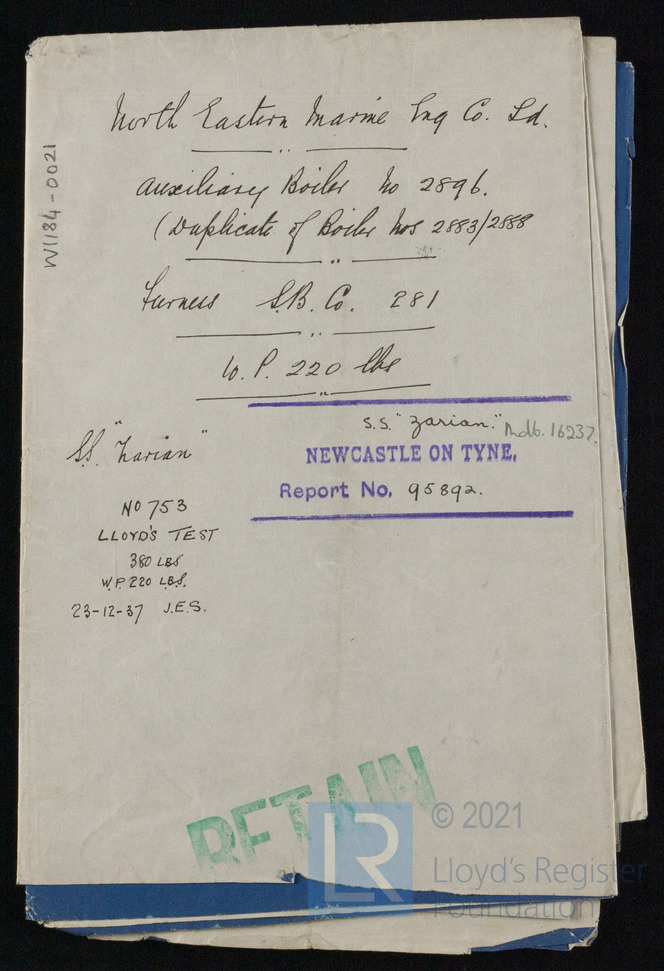 North Eastern Marine Eng Co. Ld.
Auxiliary Boiler No 2896.
(Duplicate of Boiler Nos 2883/2888
Furness S.B. Co. 281
W.P. 220 lbs
W1184-0021
S.S. "Zarian"
S.S. "Zarian." 16237.
NEWCASTLE ON TYNE.
Report No. 95892.
No 753
LLOYD'S TEST
380 LBS
W.P. 220 LBS.
23-12-37 J.E.S.
RETAIN
LR
© 2021
Lloyd's Register
Foundation